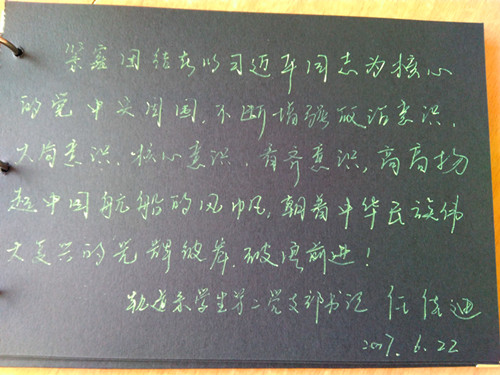 紧密团结在以习近平同志为核心
的党中央周围，不断增强政治意识、
大局意识、核心意识、看齐意识，高高扬
起中国航船的风帆，朝着中华民族伟
大复兴的光辉彼岸，破浪前进！
轨道系学生第二党支部书记 任佳迪
2017.6.22